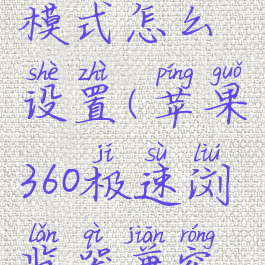 模式怎么
shè zhì píng guǒ
设置(苹果
jí sù liú
360极速浏
lǎn qì jiān róng
览器兼容